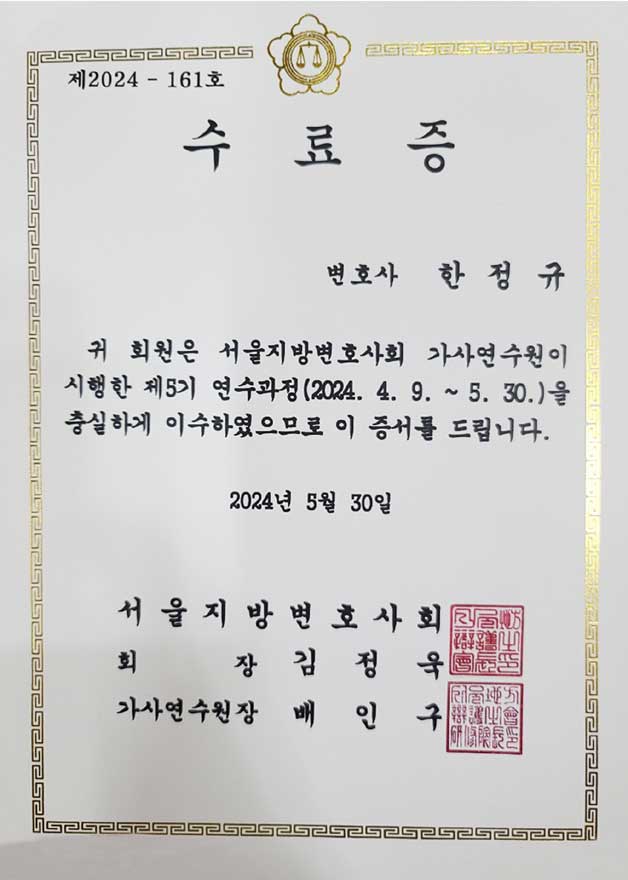 제2024 - 161호
수 료 증
변호사 한 정 규
귀 회원은 서울지방변호사회 가사연수원이
시행한 제5기 연수과정(2024. 4. 9. ~ 5. 30.)을
충실하게 이수하였으므로 이 증서를 드립니다.
2024년 5월 30일
서 울 지 방 변 호 사 회
회 장 김 정 욱
가사연수원장 배 인 구